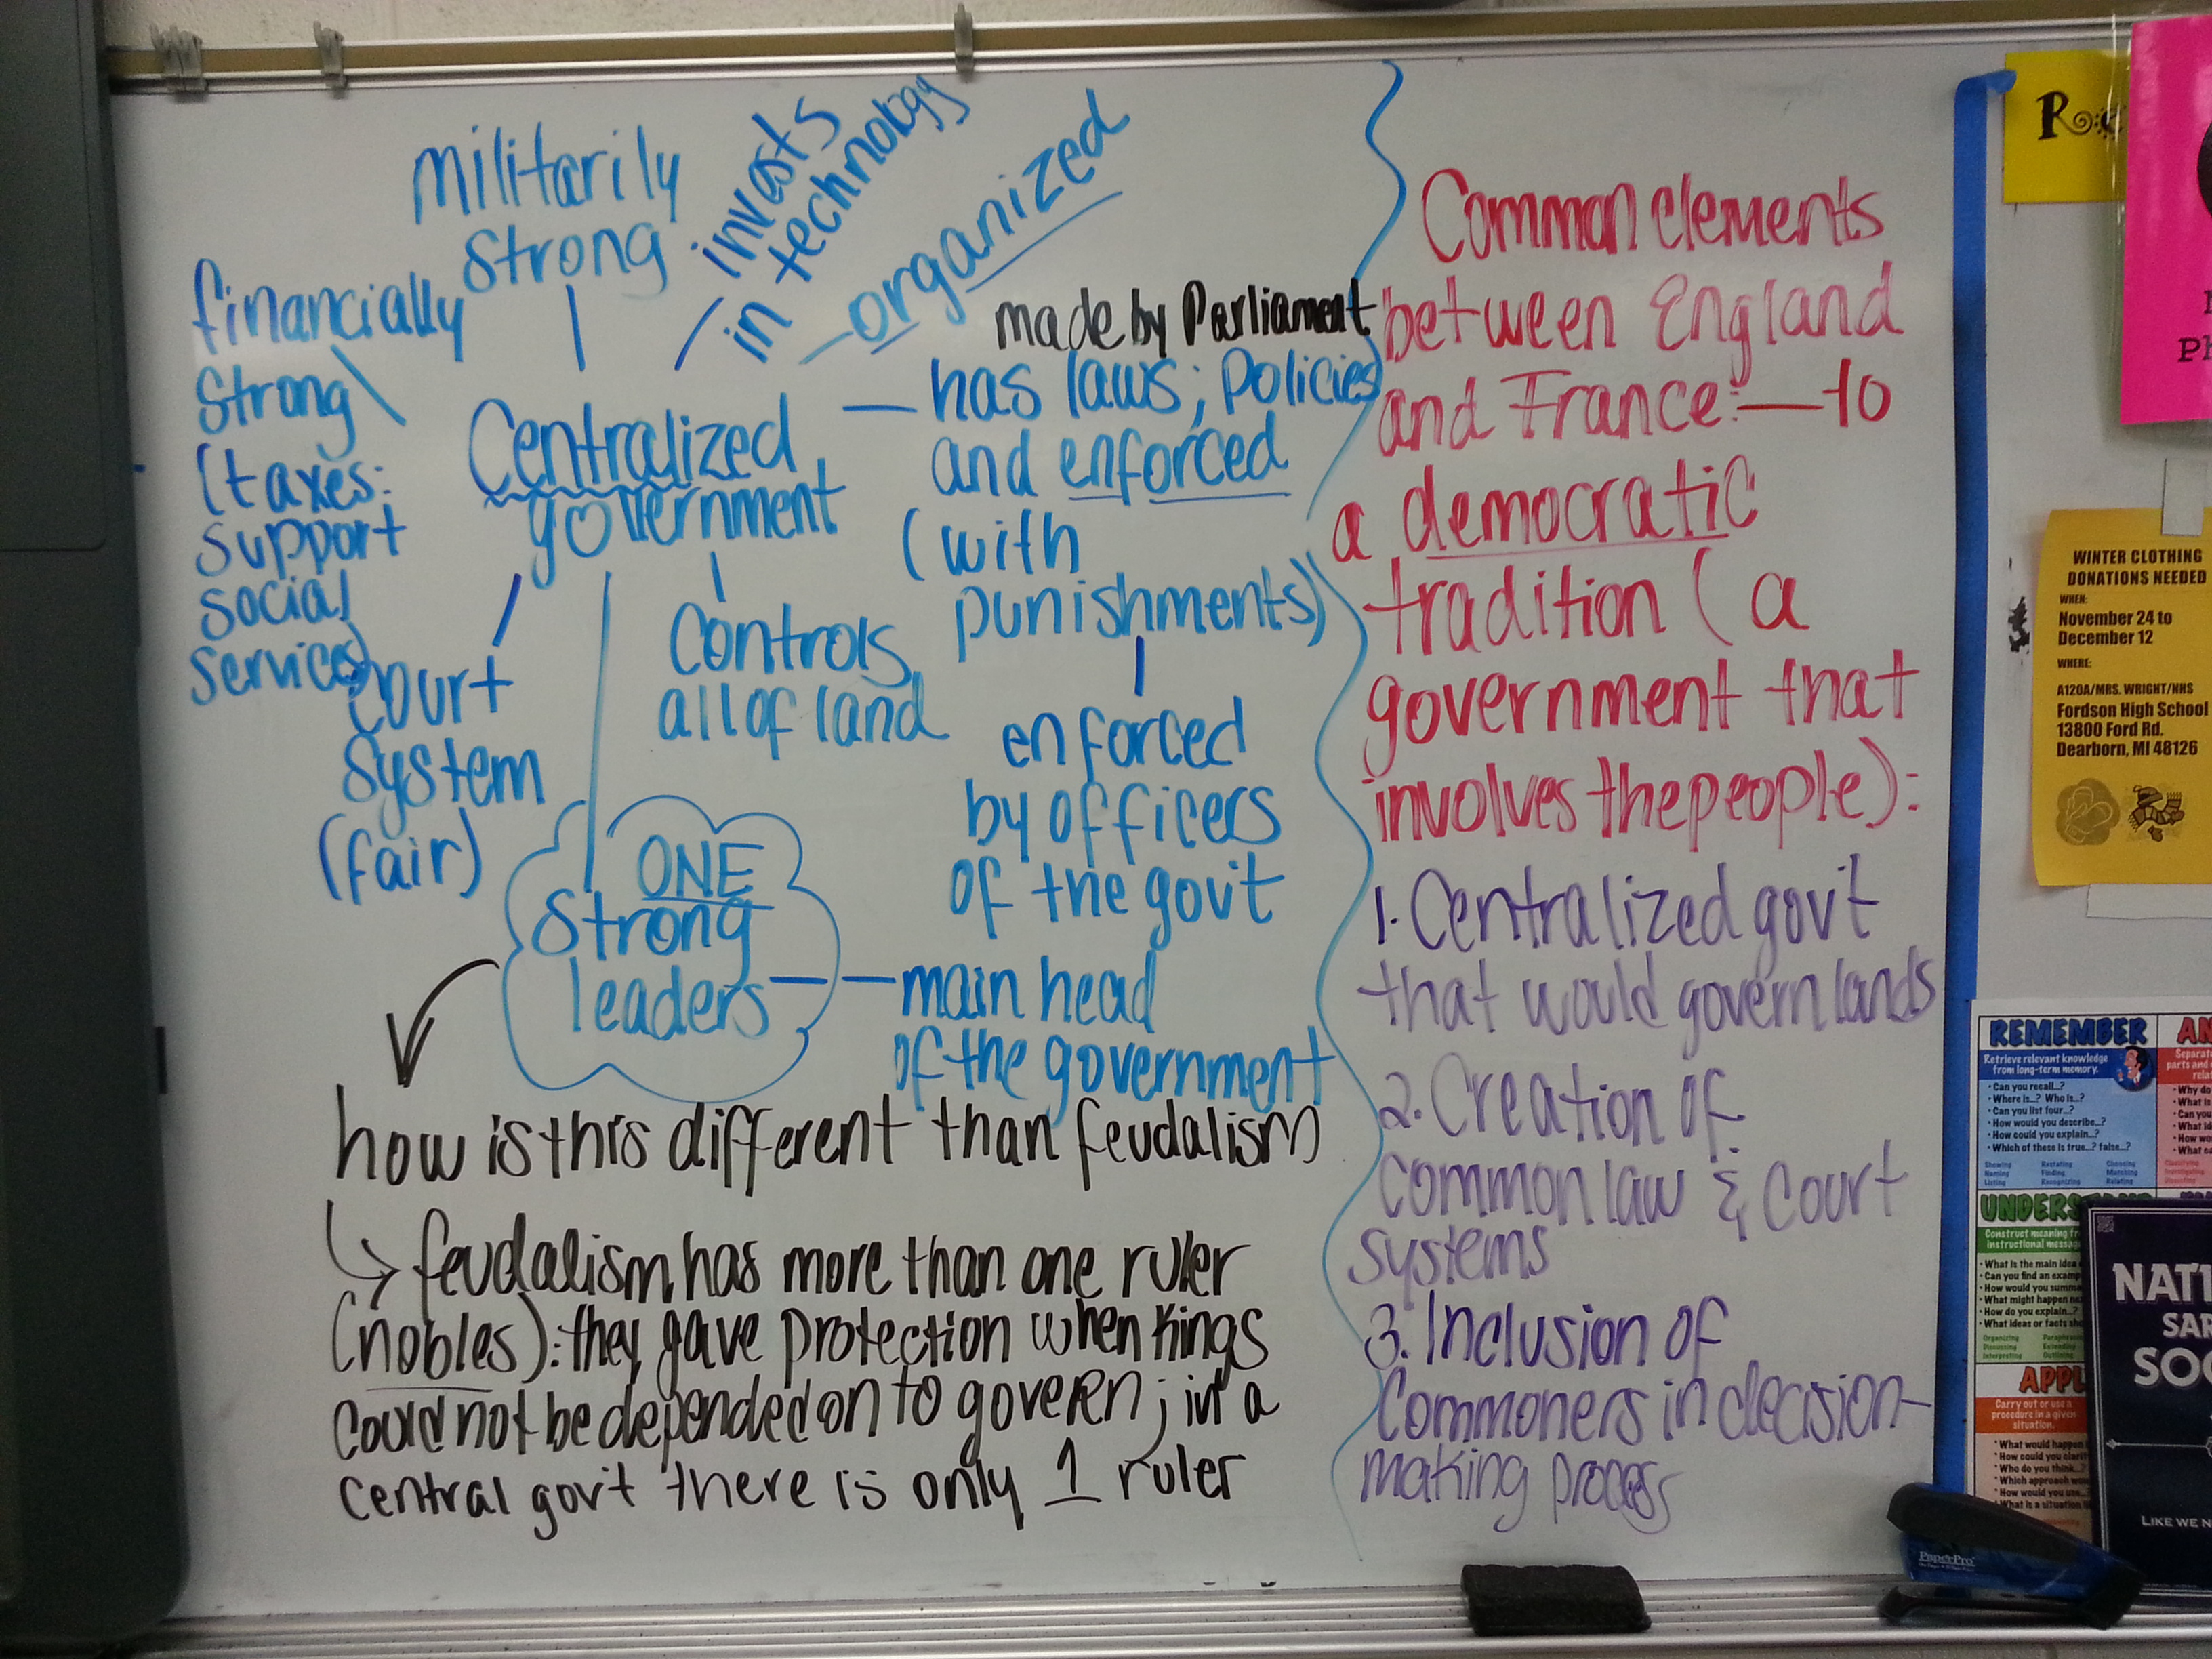 militarily
strong
invests
in technology
organized
financially
strong
(taxes:
support
social
services)
Centralized
government
made by Parliament
has laws; policies
and enforced
(with
punishments)
enforced
by officers
of the gov't
controls
all of land
court
system
(fair)
ONE
strong
leaders
main head
of the government
how is this different than feudalism
feudalism has more than one ruler
(nobles): they gave protection when kings
could not be depended on to govern; in a
central gov't there is only 1 ruler
Common elements
between England
and France: — to
a democratic
tradition (a
government that
involves the people):
1. Centralized gov't
that would govern lands
2. Creation of
common law & court
systems
3. Inclusion of
commoners in decision-
making process
WINTER CLOTHING
DONATIONS NEEDED
WHEN:
November 24 to
December 12
WHERE:
A120A/MRS. WRIGHT/NHS
Fordson High School
13800 Ford Rd.
Dearborn, MI 48126
REMEMBER
Retrieve relevant knowledge
from long-term memory.
• Can you recall...?
• Where is...? Who is...?
• Can you list four...?
• How would you describe...?
• How could you explain...?
• Which of these is true...? false...?
Showing
Naming
Listing
Restating
Finding
Recognizing
Choosing
Matching
Relating
UNDERS
Construct meaning
instructional
• What is the main idea
• Can you find an
• How would you
• What might happen
• How do you explain...?
• What ideas or facts
APPL
Carry out or use a
procedure in a given
situation.
• What would happen
• How could you
• Who do you think...?
• Which approach
• How would you
• What is a situation
NATI
SAR
SOC
LIKE WE N
PaperPro